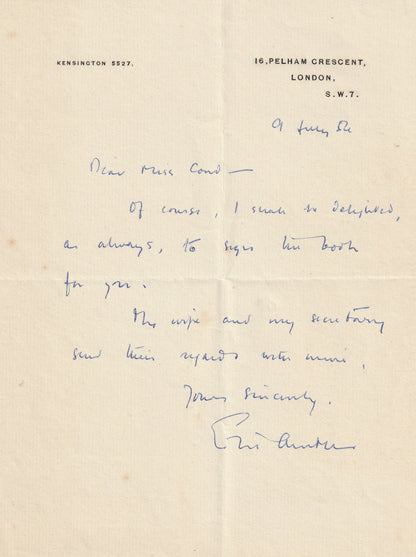 KENSINGTON 5527.
16, PELHAM CRESCENT,
LONDON,
S.W.7.
9 July 54
Dear Miss Cond —
Of course, I shall be delighted,
as always, to sign the book
for you.
My wife and my secretary
send their regards with mine.
Yours sincerely.
Eric Ambler